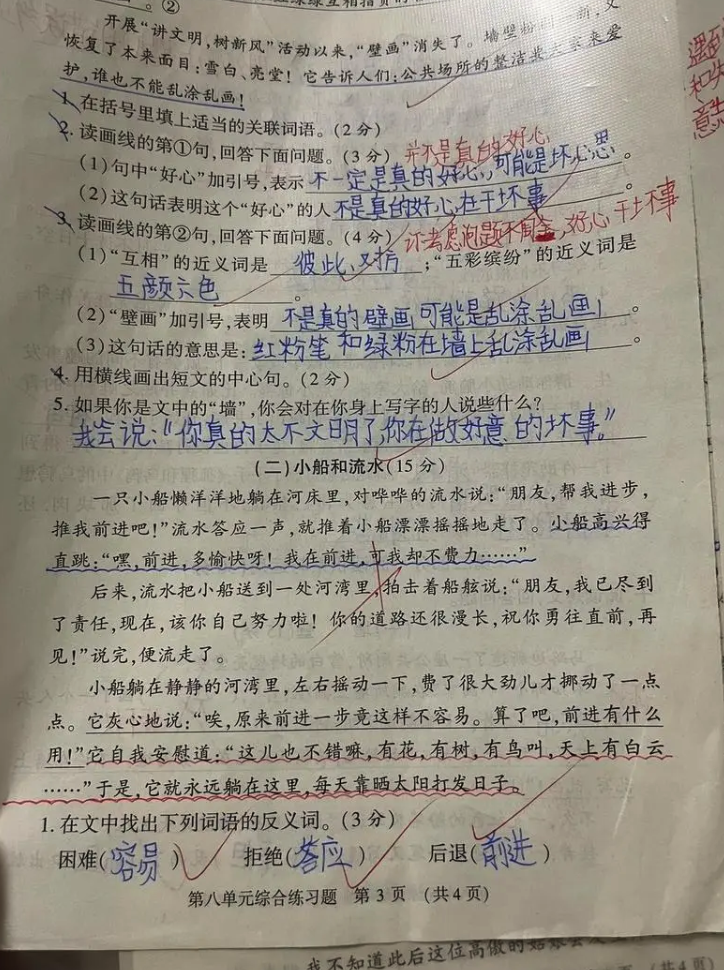 。②
开展“讲文明,树新风”活动以来,“壁画”消失了。墙壁粉
恢复了本来面目:雪白、亮堂!它告诉人们:公共场所的整洁要大家来爱
护,谁也不能乱涂乱画!
1.在括号里填上适当的关联词语。(2分)
2.读画线的第①句,回答下面问题。(3分)并不是真的好心
(1)句中“好心”加引号,表示不一定是真的好心,可能是坏心思。
(2)这句话表明这个“好心”的人不是真的好心,在干坏事。
3.读画线的第②句,回答下面问题。(4分)
好心干坏事
(1)“互相”的近义词是彼此、;“五彩缤纷”的近义词是
五颜六色。
(2)“壁画”加引号,表明不是真的壁画,可能是乱涂乱画。
(3)这句话的意思是:红粉笔和绿粉在墙上乱涂乱画。
4.用横线画出短文的中心句。(2分)
5.如果你是文中的“墙”,你会对在你身上写字的人说些什么?
我会说:“你真的太不文明了,你在做好意的坏事。”
(二)小船和流水(15分)
一只小船懒洋洋地躺在河床里,对哗哗的流水说:“朋友,帮我进步,
推我前进吧!”流水答应一声,就推着小船漂漂摇摇地走了。小船高兴得
直跳:“嘿,前进,多愉快呀!我在前进,可我却不费力……”
后来,流水把小船送到一处河湾里,拍击着船舷说:“朋友,我已尽到
了责任,现在,该你自己努力啦!你的道路还很漫长,祝你勇往直前,再
见!”说完,便流走了。
小船躺在静静的河湾里,左右摇动一下,费了很大劲儿才挪动了一点
点。它灰心地说:“唉,原来前进一步竟这样不容易。算了吧,前进有什么
用!”它自我安慰道:“这儿也不错嘛,有花,有树,有鸟叫,天上有白云
……”于是,它就永远躺在这里,每天靠晒太阳打发日子。
1.在文中找出下列词语的反义词。(3分)
困难(容易) 拒绝(答应) 后退(前进)
第八单元综合练习题 第3页 (共4页)
我不知道此后这位高傲的姑娘会
(共4页)